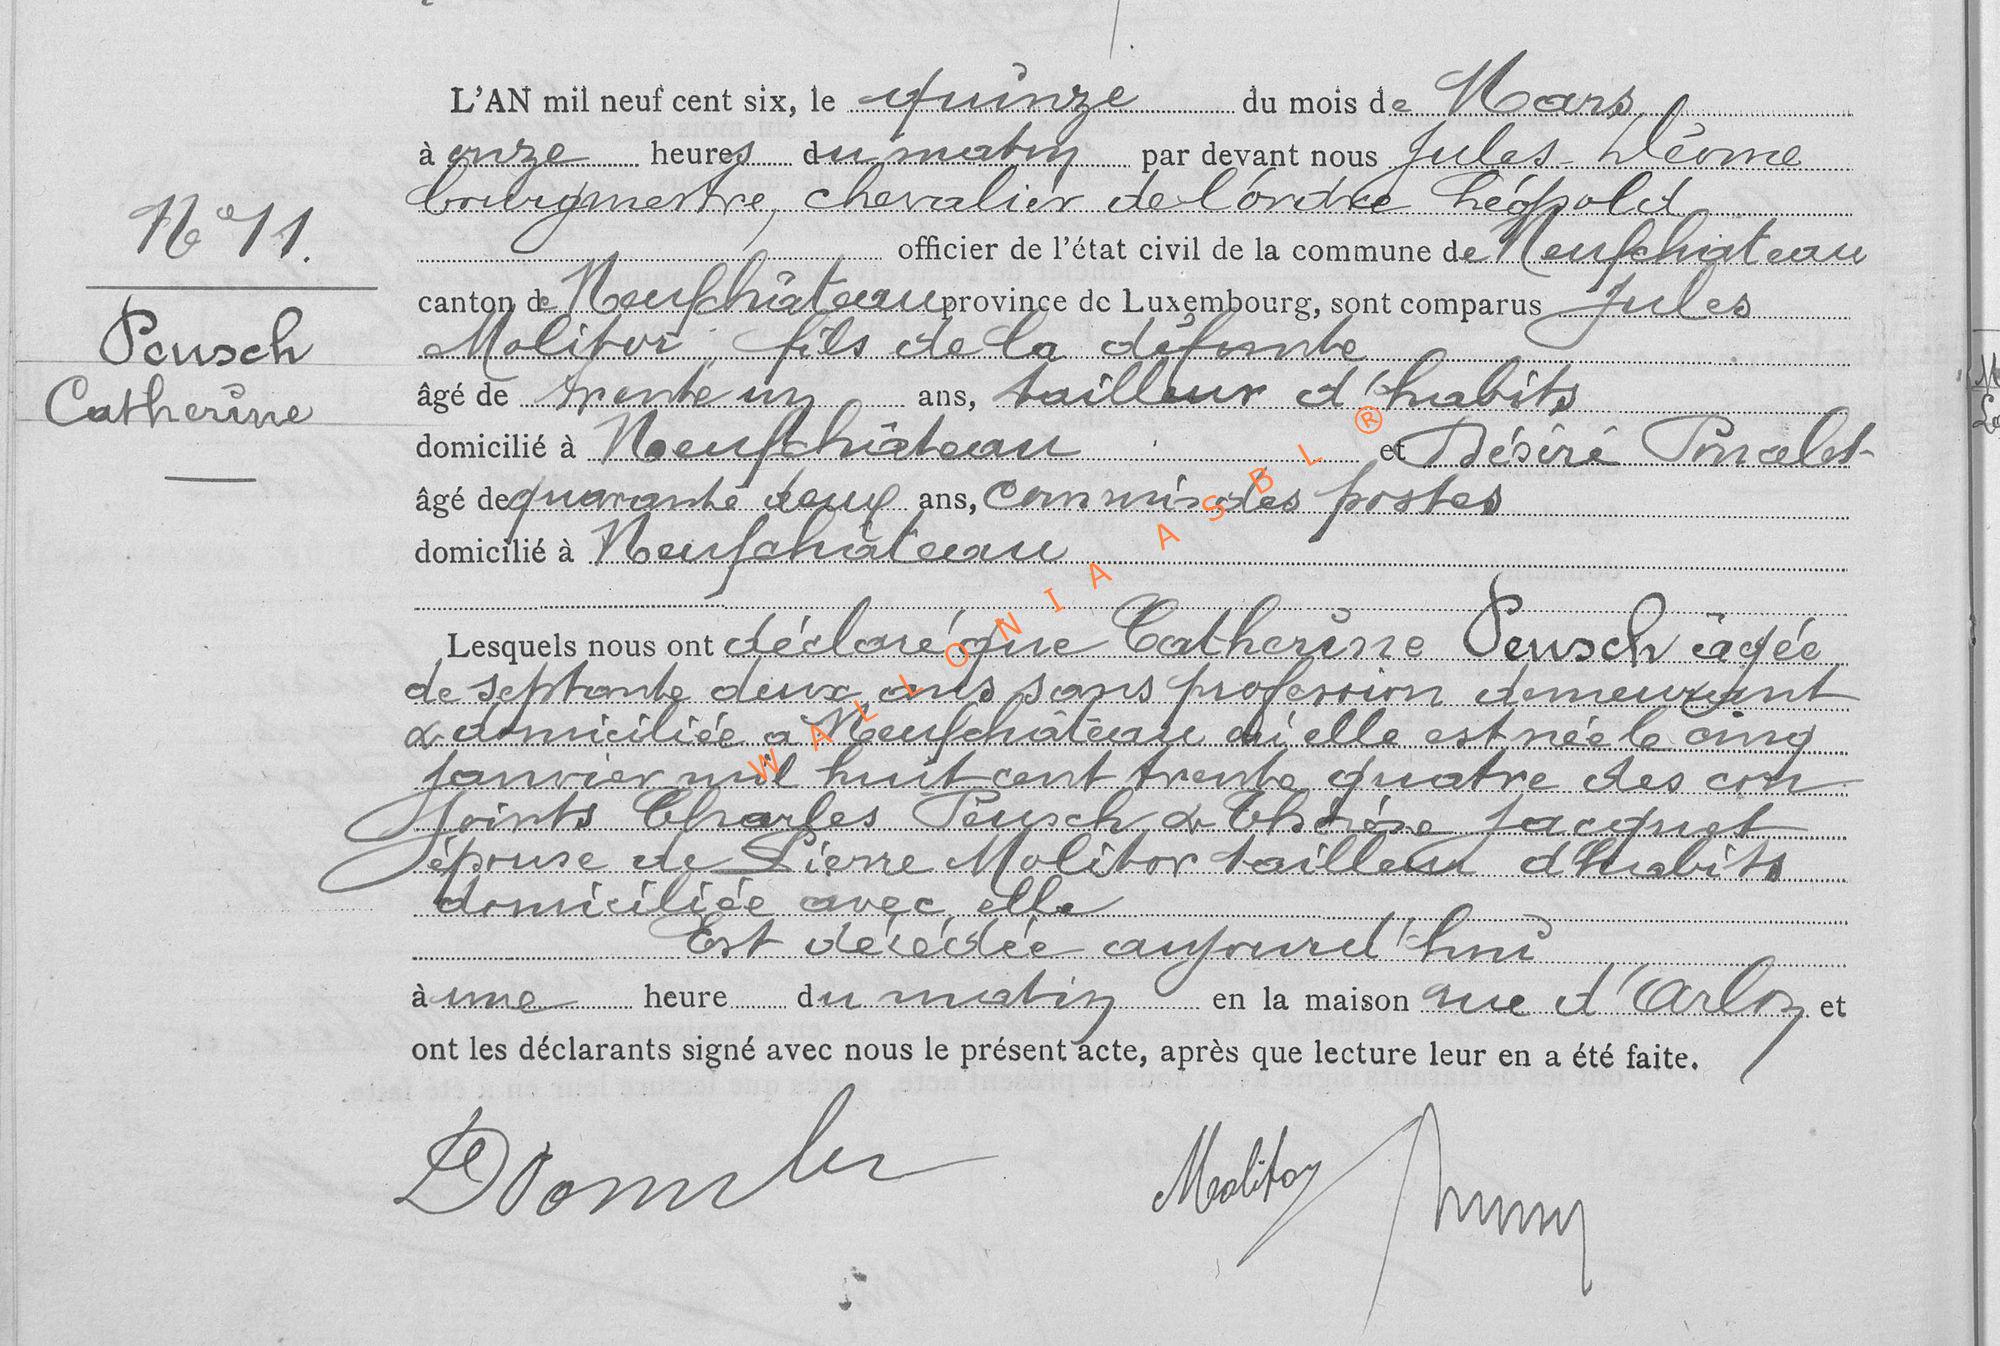 L'AN mil neuf cent six, le quinze du mois de Mars
à onze heures du matin par devant nous Jules
bourgmestre, chevalier de l'ordre Léopold
officier de l'état civil de la commune de Neufchâteau
canton de Neufchâteau province de Luxembourg, sont comparus Jules
Molitor, fils de la défunte
âgé de trente un ans, tailleur d'habits
domicilié à Neufchâteau et Désiré Poncelet
âgé de quarante deux ans, commis des postes
domicilié à Neufchâteau
Lesquels nous ont déclaré que Catherine Peusch âgée
de septante deux ans sans profession demeurant
& domiciliée a Neufchâteau où elle est née le cinq
janvier mil huit cent trente quatre des con
joints Charles Peusch & Thérèse Jacquet
épouse de Pierre Molitor tailleur d'habits
domiciliée avec elle
Est décédée aujourd'hui
à une heure du matin en la maison rue d'Arlon et
ont les déclarants signé avec nous le présent acte, après que lecture leur en a été faite.
Molitor
N° 11.
Peusch
Catherine
WALLONIA ASBL ®